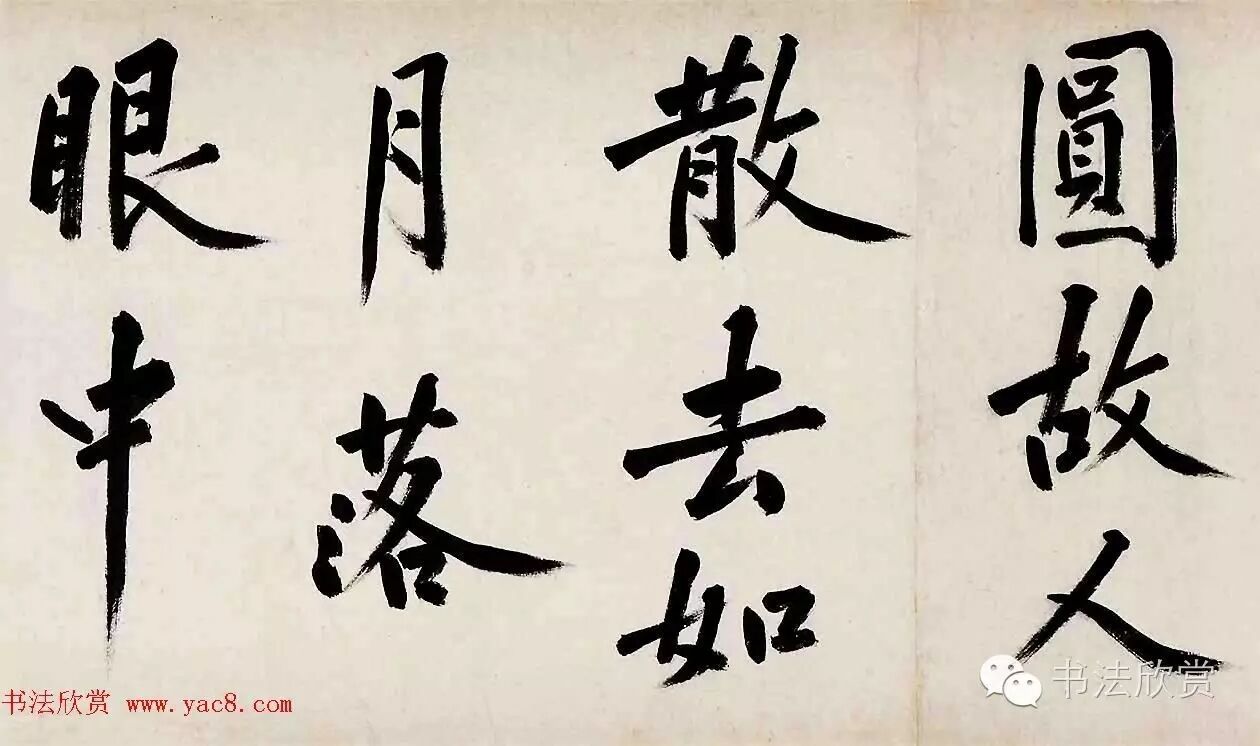 圓故人
散去如
月落
眼中
书法欣赏 www.yac8.com
书法欣赏